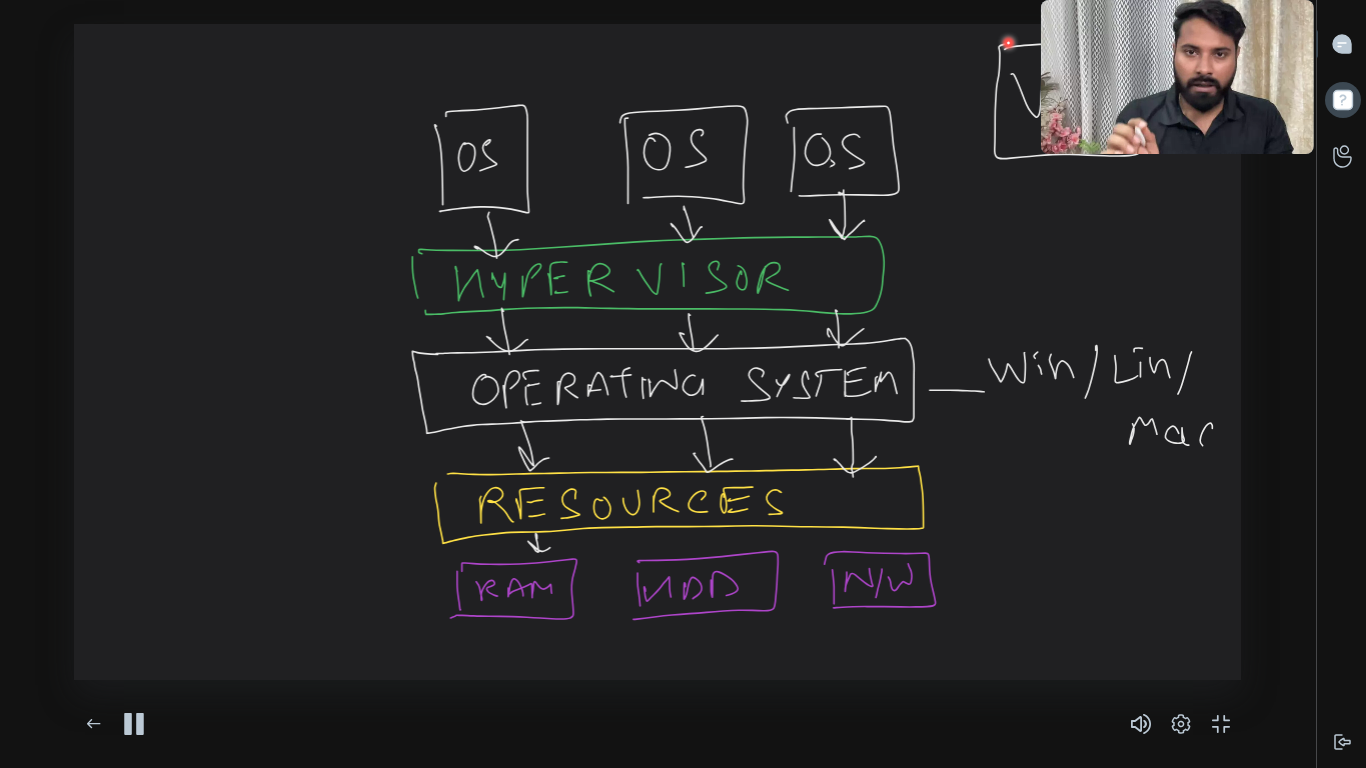 OS OS OS
HYPERVISOR
OPERATING SYSTEM
Win/Lin/
Mac
RESOURCES
RAM HDD N/W